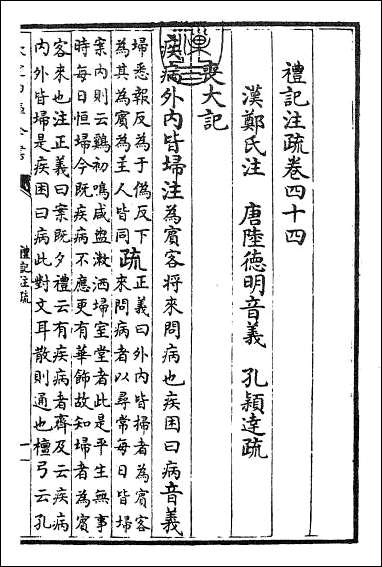 禮記注疏卷四十四
漢鄭氏注 唐陸德明音義 孔穎達疏
喪大記
疾病外内皆埽注為賓客將來問病也疾困曰病音義
埽悉報反為于偽反下
為其為賓為主人皆同
疏
正義曰外内皆掃者為賓客
來問病者以尋常每日皆埽
案内則云鷄初鳴咸盥漱洒埽室堂者此是平生無事
時每日恒埽今既疾病不應更有華飾故知埽者為賓
客來也注正義曰案既夕禮云有疾病者齊及云疾病
内外皆埽是疾困曰病此對文耳散則通也檀弓云孔
禮記注疏
一